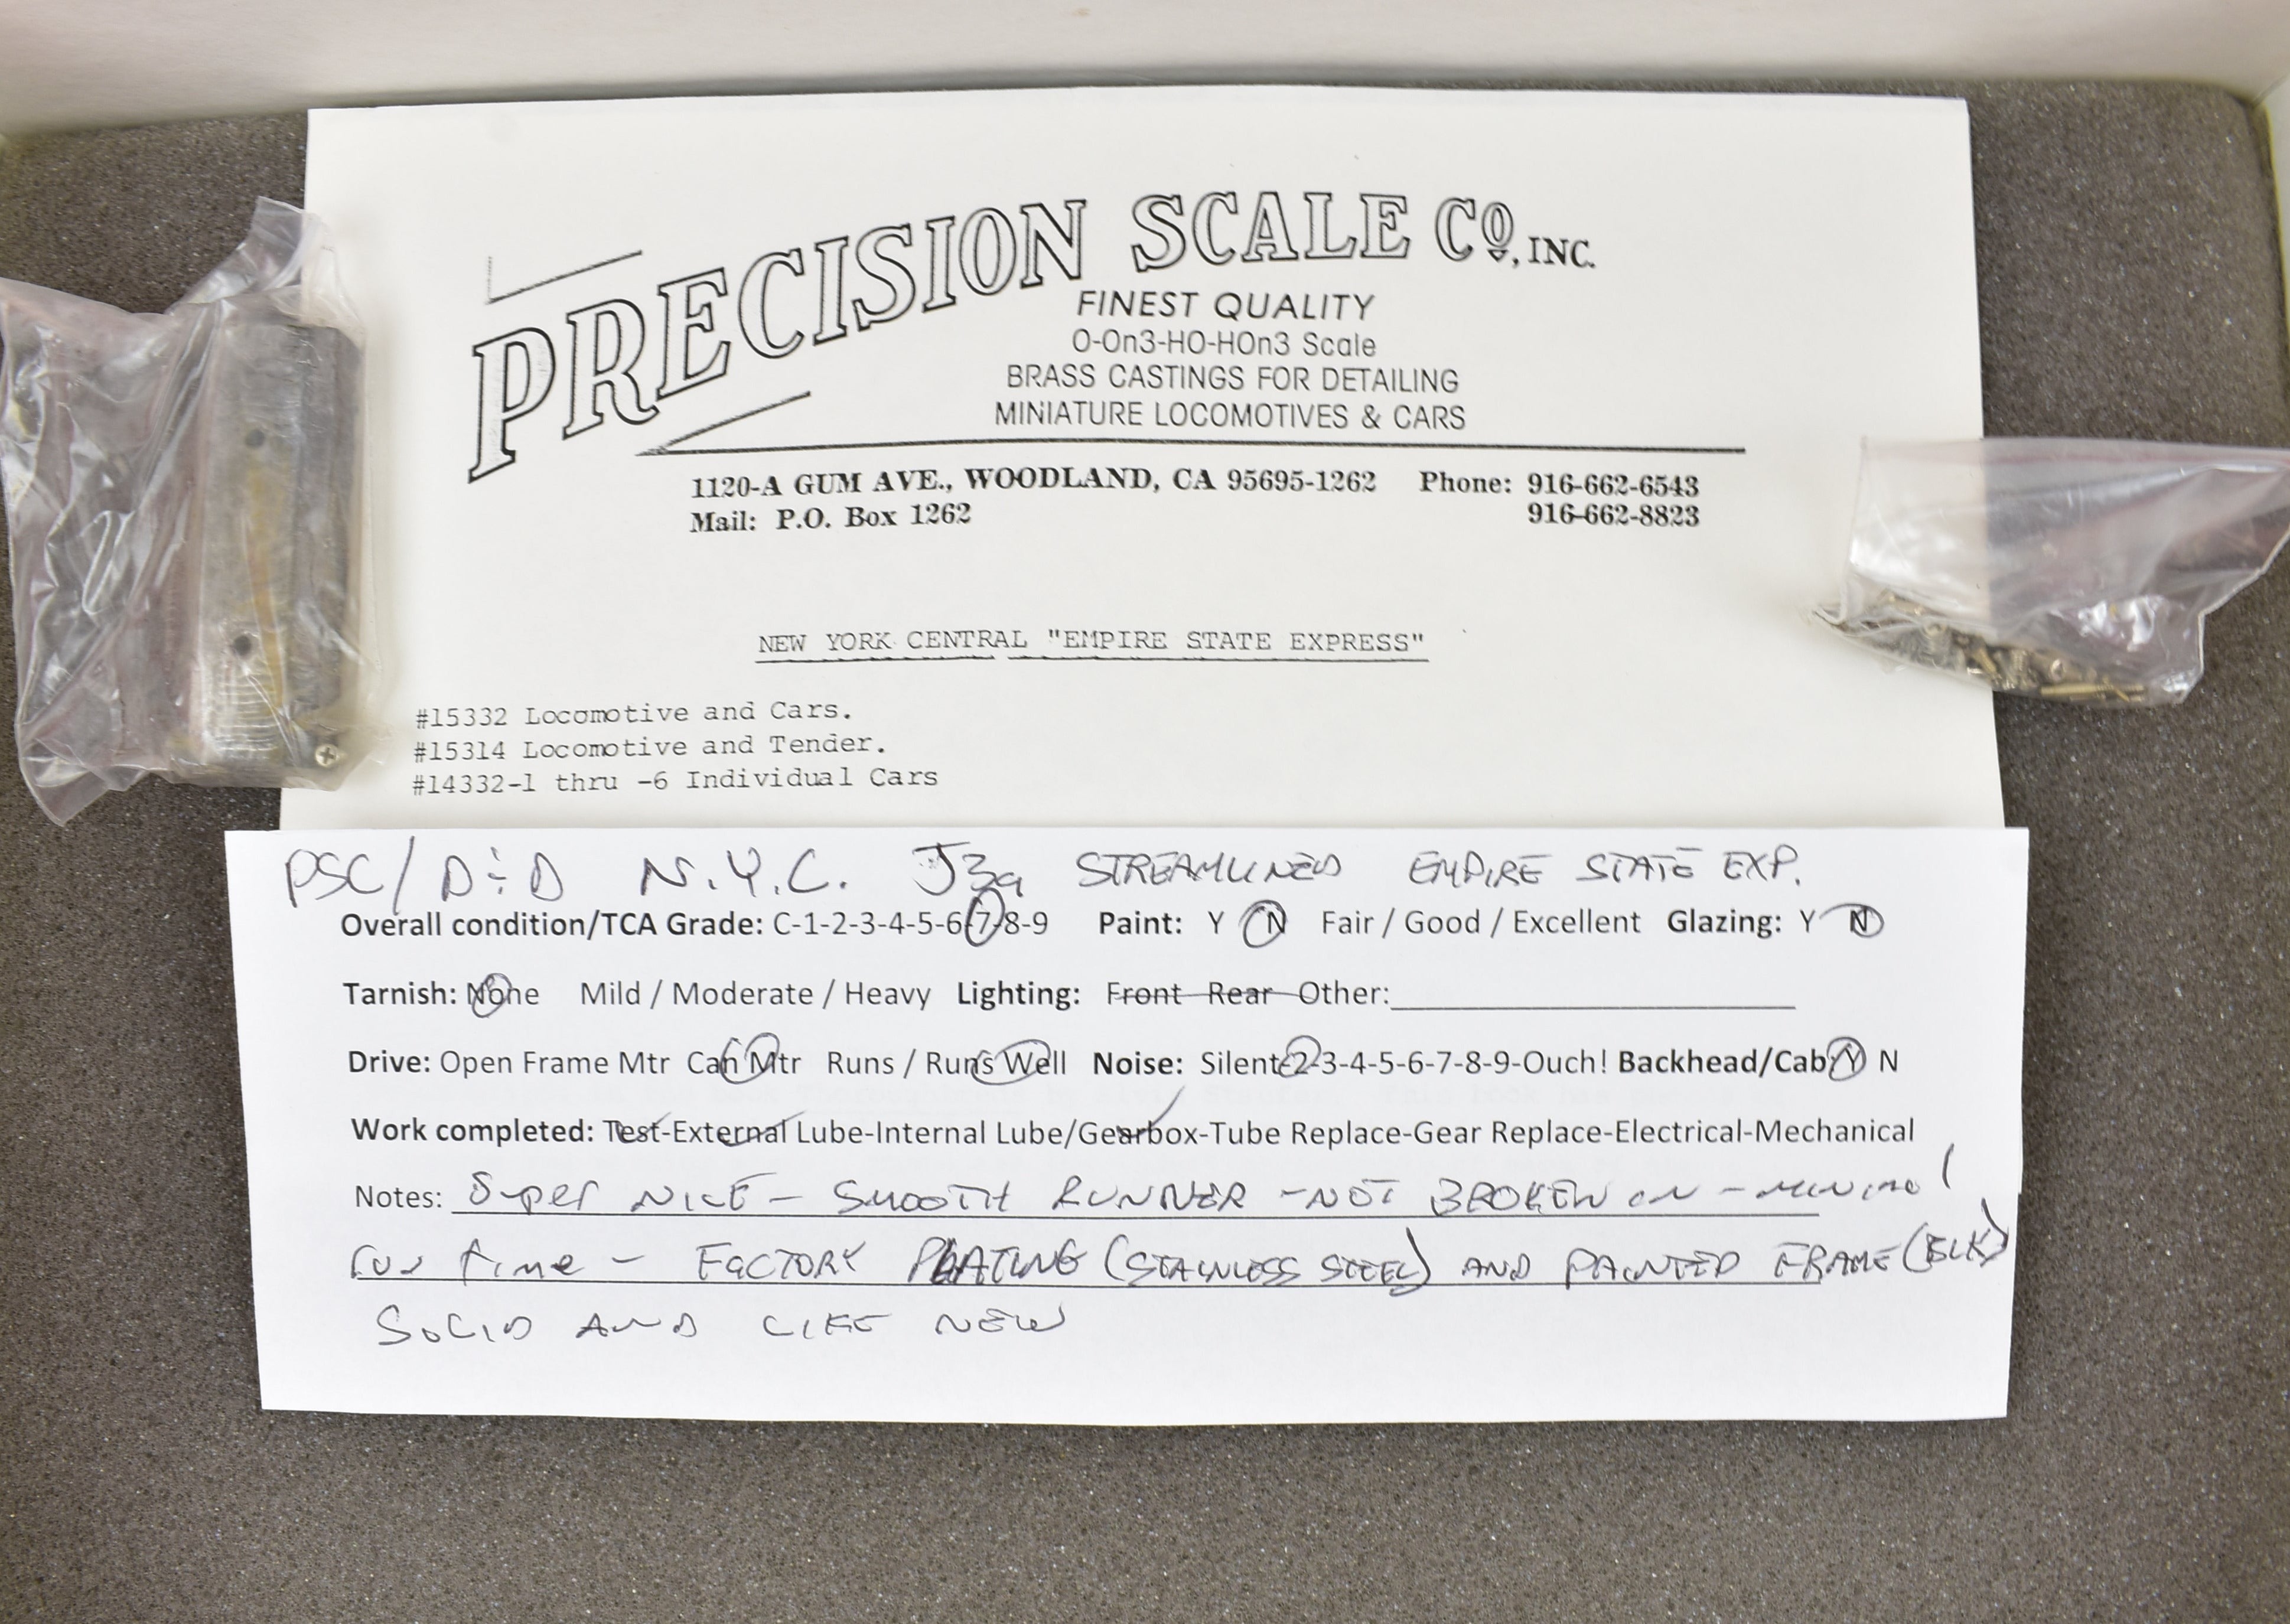 PRECISION SCALE CO., INC.
FINEST QUALITY
O-On3-HO-HOn3 Scale
BRASS CASTINGS FOR DETAILING
MINIATURE LOCOMOTIVES & CARS
1120-A GUM AVE., WOODLAND, CA 95695-1262 Phone: 916-662-6543
Mail: P.O. Box 1262 916-662-8823
NEW YORK CENTRAL "EMPIRE STATE EXPRESS"
#15332 Locomotive and Cars.
#15314 Locomotive and Tender.
#14332-1 thru -6 Individual Cars
PSC/D&D N.Y.C. J3a STREAMLINED EMPIRE STATE EXP.
Overall condition/TCA Grade: C-1-2-3-4-5-6-7-8-9 Paint: Y N Fair / Good / Excellent Glazing: Y N
Tarnish: None Mild / Moderate / Heavy Lighting: Front Rear Other:
Drive: Open Frame Mtr Can Mtr Runs / Runs Well Noise: Silent-2-3-4-5-6-7-8-9-Ouch! Backhead/Cab: Y N
Work completed: Test-External Lube-Internal Lube/Gearbox-Tube Replace-Gear Replace-Electrical-Mechanical
Notes: Super NICE - SMOOTH RUNNER - NOT BROKEN IN - minimal
run time - FACTORY PLATING (STAINLESS STEEL) AND PAINTED FRAME (BLK)
SOLID AND LIKE NEW